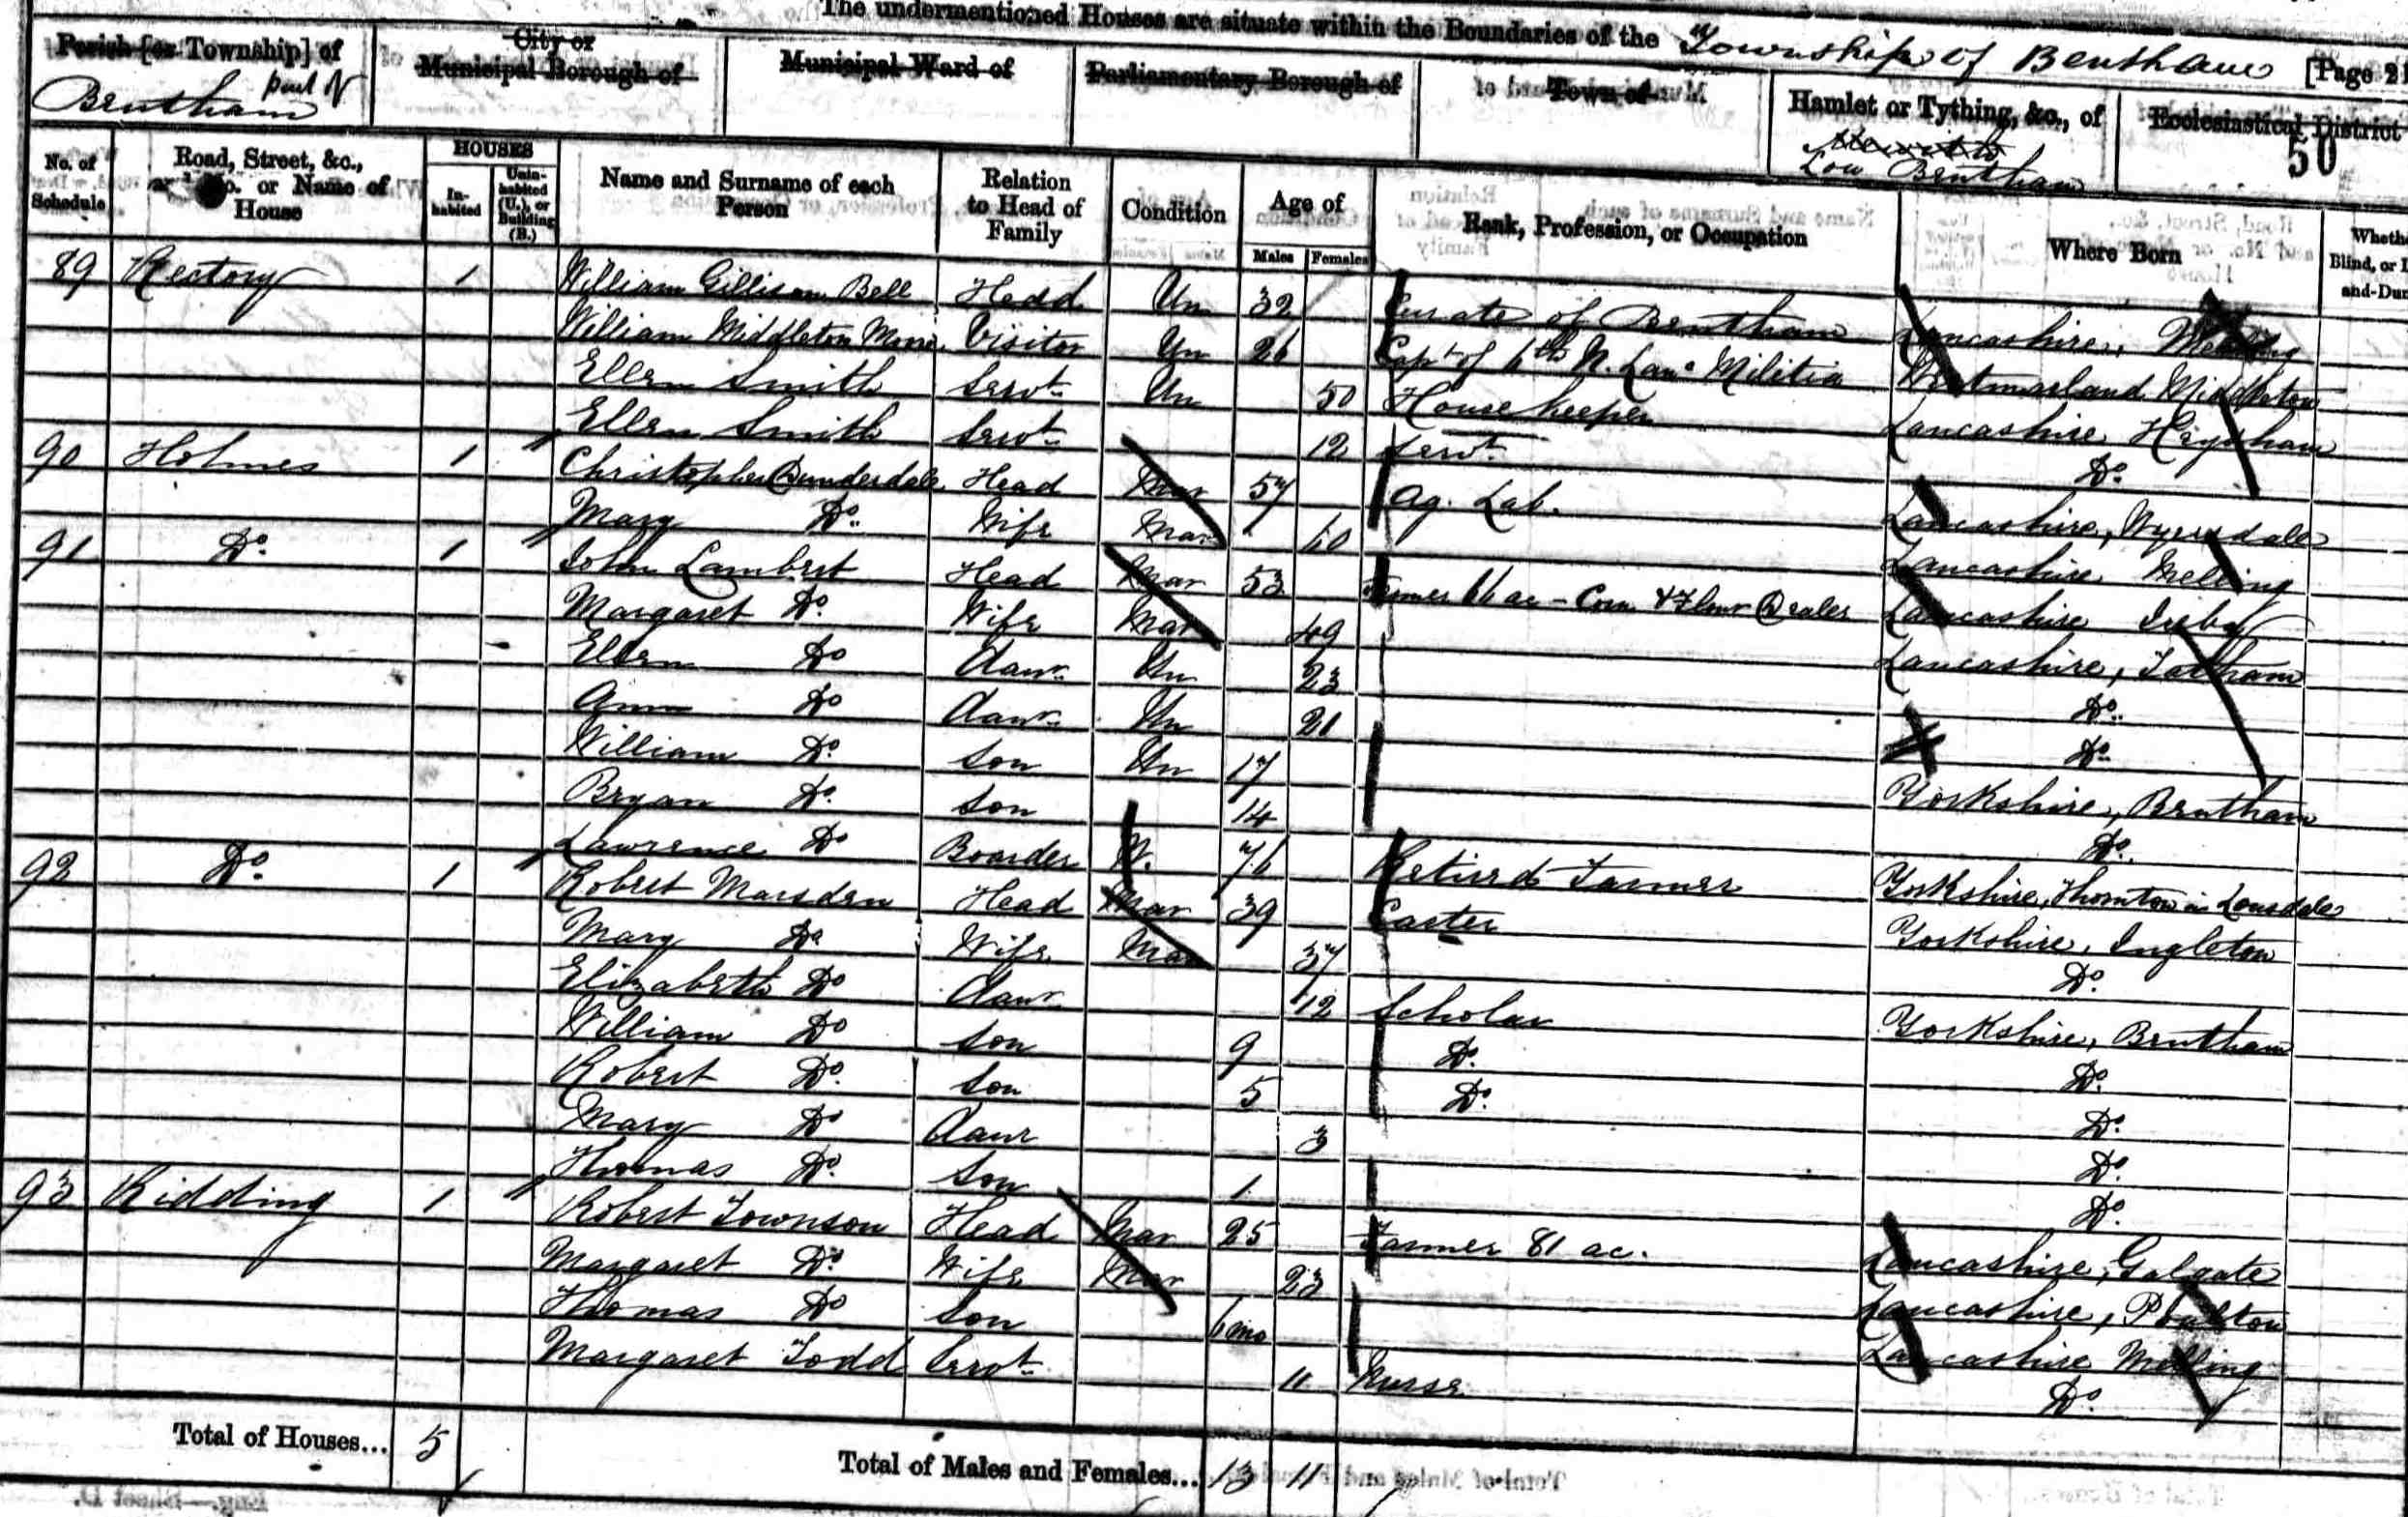 The undermentioned Houses are situate within the Boundaries of the Township of Bentham [Page 2
Parish [or Township] of City or Municipal Borough of Municipal Ward of Parliamentary Borough of Town of Hamlet or Tything, &c., of Ecclesiastical District
Bentham part of Low Bentham 50
No. of Schedule Road, Street, &c., and No. or Name of House HOUSES Inhabited Uninhabited (U.), or Building (B.) Name and Surname of each Person Relation to Head of Family Condition Age of Males Females Rank, Profession, or Occupation Where Born Wheth Blind, or D and-Dum
89 Rectory 1 William Gillison Bell Head Un 32 Curate of Bentham Lancashire, Melling
William Middleton Visitor Un 26 Capt of 6th N. Lanc Militia Westmorland Middleton
Ellen Smith Servt Un 50 Housekeeper Lancashire Heysham
Ellen Smith Servt 12 Servt Do
90 Holmes 1 Christopher Bunderdale Head Mar 57 Ag. Lab. Lancashire, Wyersdale
Mary Do Wife Mar 60 Lancashire Melling
91 Do 1 John Lambert Head Mar 53 Farmer 66 ac - Corn & Flour Dealer Lancashire Ireby
Margaret Do Wife Mar 49 Lancashire, Tatham
Ellen Do Daur Un 23 Do
Ann Do Daur Un 21 Do
William Do Son Un 17 Yorkshire, Bentham
Bryan Do Son 14 Do
Lawrence Do Boarder W. 76 Retierd Farmer Yorkshire, Thornton in Lonsdale
92 Do 1 Robert Marsden Head Mar 39 Carter Yorkshire, Ingleton
Mary Do Wife Mar 37 Do
Elizabeth Do Daur 12 Scholar Yorkshire, Bentham
William Do Son 9 Do Do
Robert Do Son 5 Do Do
Mary Do Daur 3 Do
Thomas Do Son 1 Do
93 Ridding 1 Robert Townson Head Mar 25 Farmer 81 ac. Lancashire, Galgate
Margaret Do Wife Mar 23 Lancashire, Poulton
Thomas Do Son 6 mo Lancashire Melling
Margaret Todd Servt 11 Nurse Do
Total of Houses... 5 Total of Males and Females... 13 11